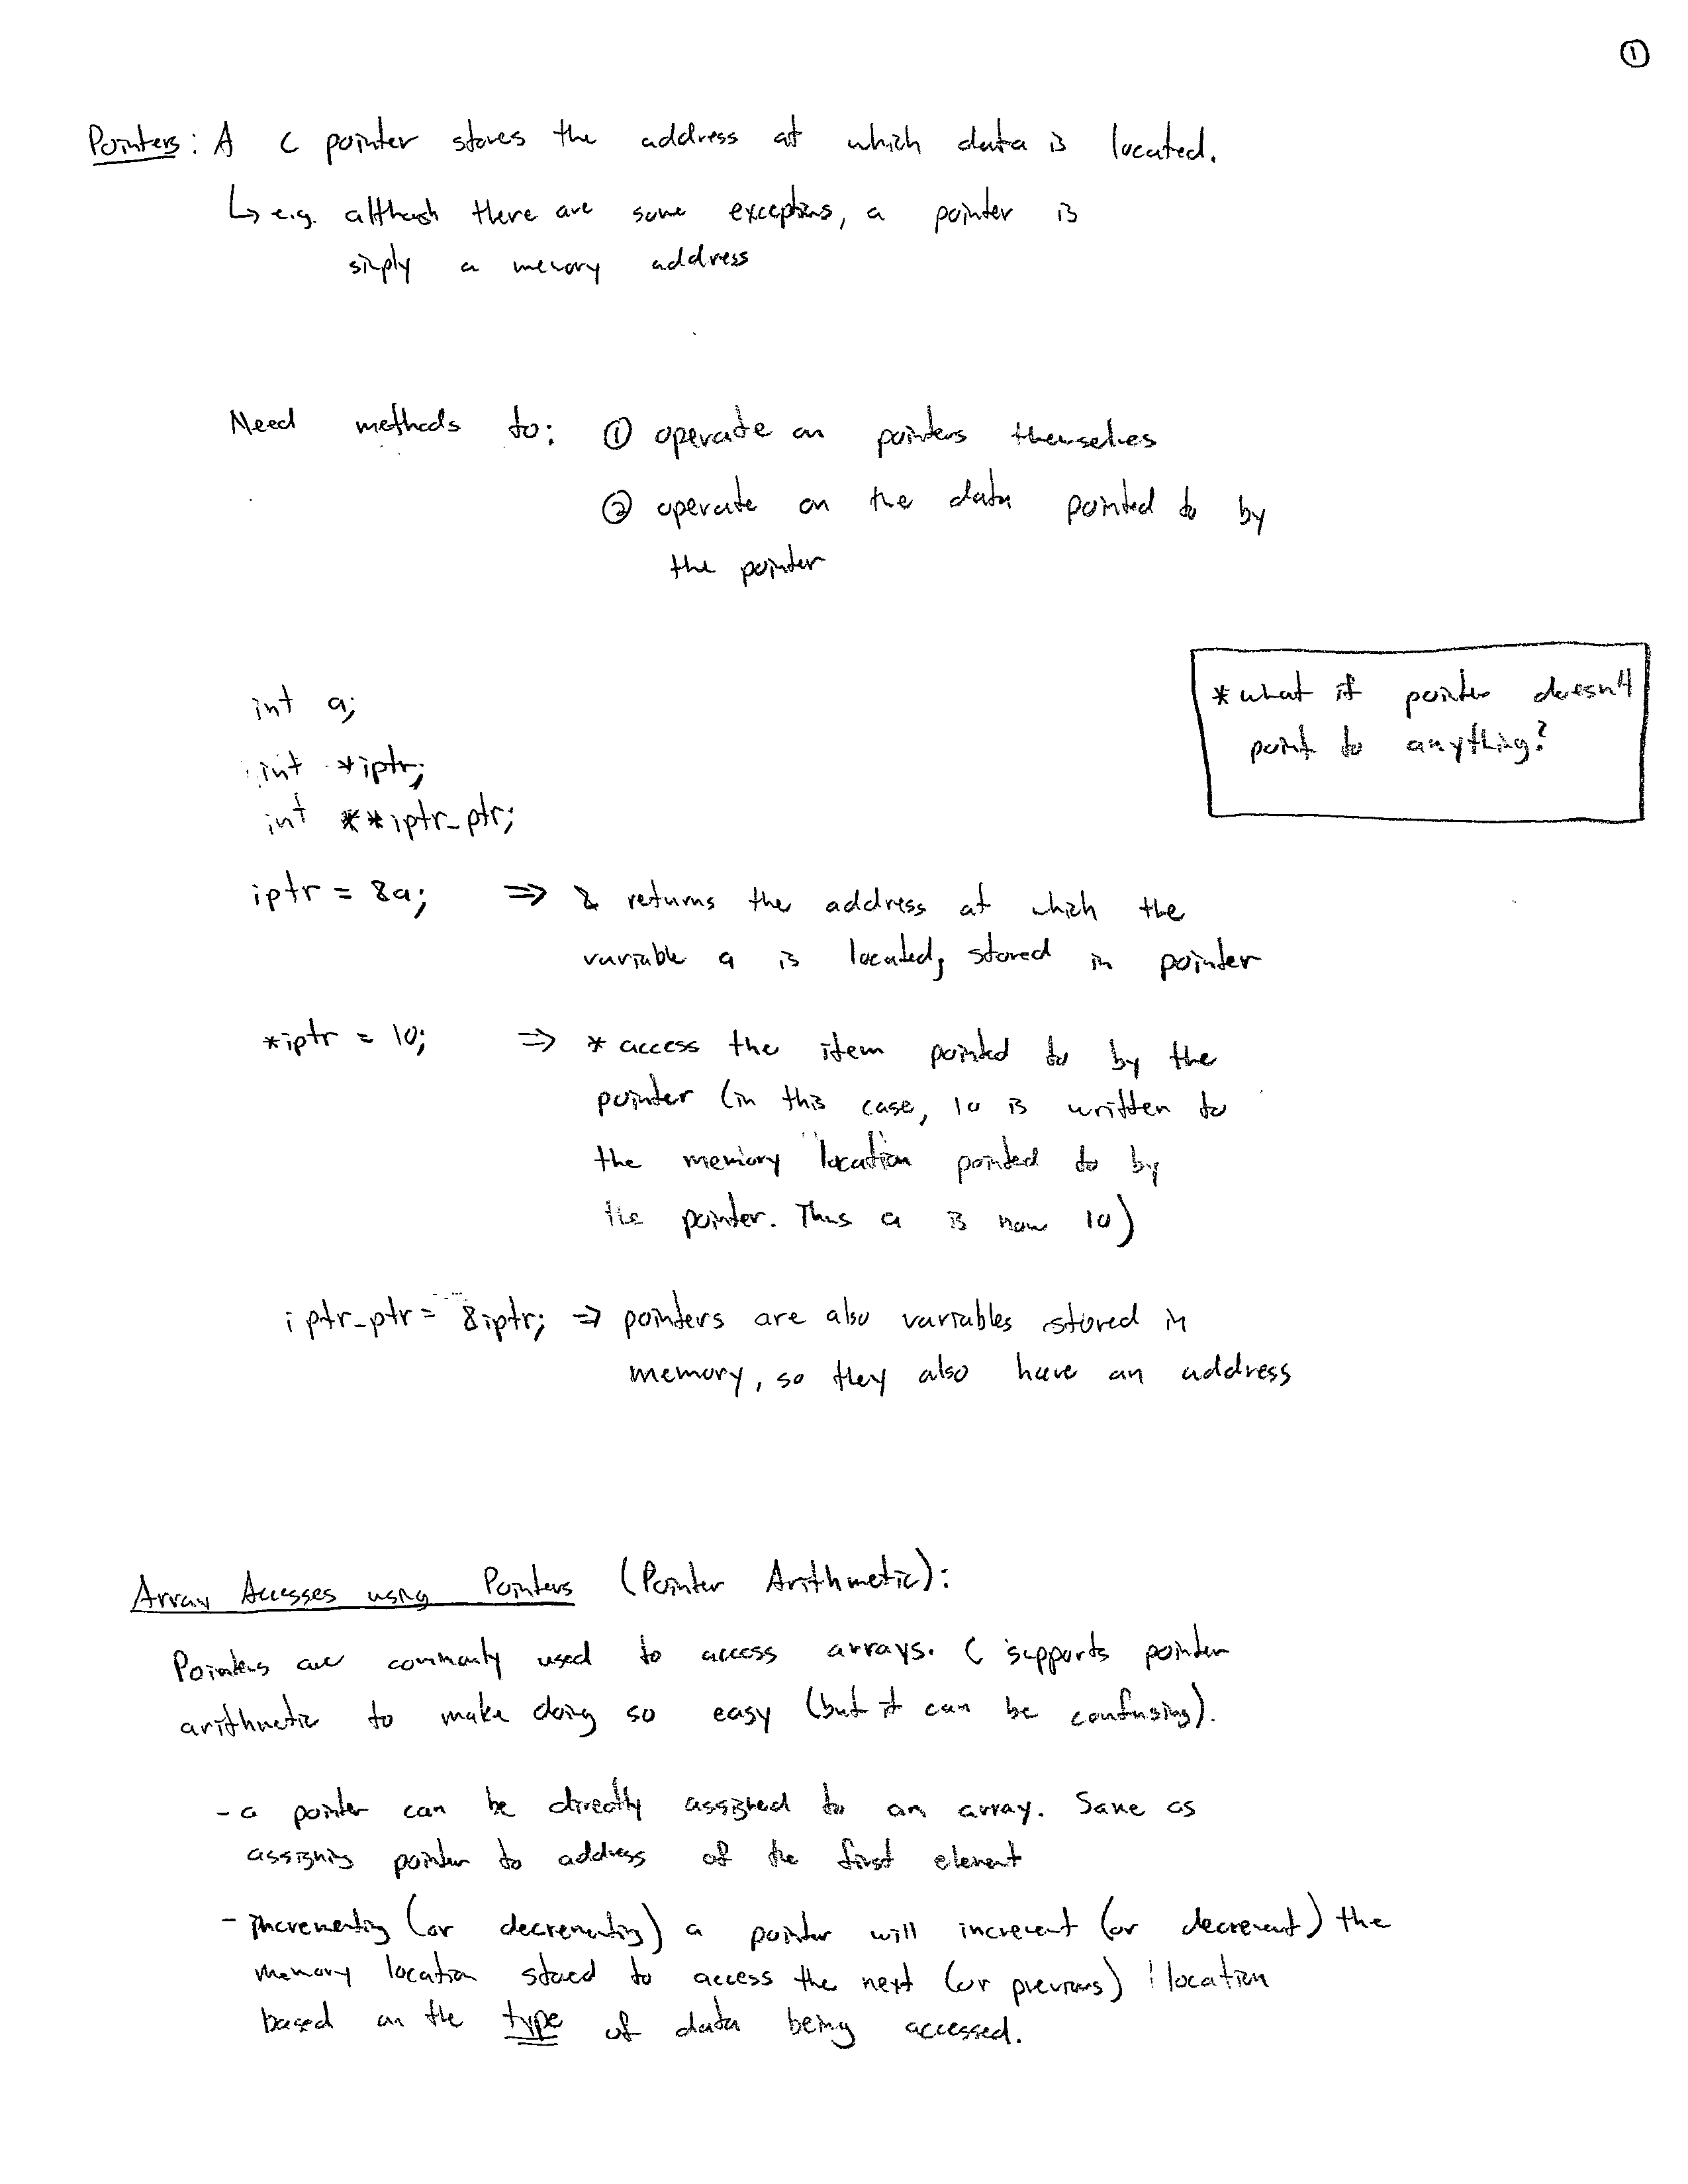 ①
Pointers: A C pointer stores the address at which data is located.
↳ e.g. although there are some exceptions, a pointer is
simply a memory address
Need methods to: ① operate on pointers themselves
② operate on the data pointed to by
the pointer
*what if pointer doesn't
point to anything?
int a;
int *iptr;
int **iptr_ptr;
iptr = &a; ⇒ & returns the address at which the
variable a is located, stored in pointer
*iptr = 10; ⇒ * access the item pointed to by the
pointer (in this case, 10 is written to
the memory location pointed to by
the pointer. Thus a is now 10)
iptr_ptr = &iptr; ⇒ pointers are also variables stored in
memory, so they also have an address
Array Accesses using Pointers (Pointer Arithmetic):
Pointers are commonly used to access arrays. C supports pointer
arithmetic to make doing so easy (but it can be confusing).
- a pointer can be directly assigned to an array. Same as
assigning pointer to address of the first element
- incrementing (or decrementing) a pointer will increment (or decrement) the
memory location stored to access the next (or previous) location
based on the type of data being accessed.